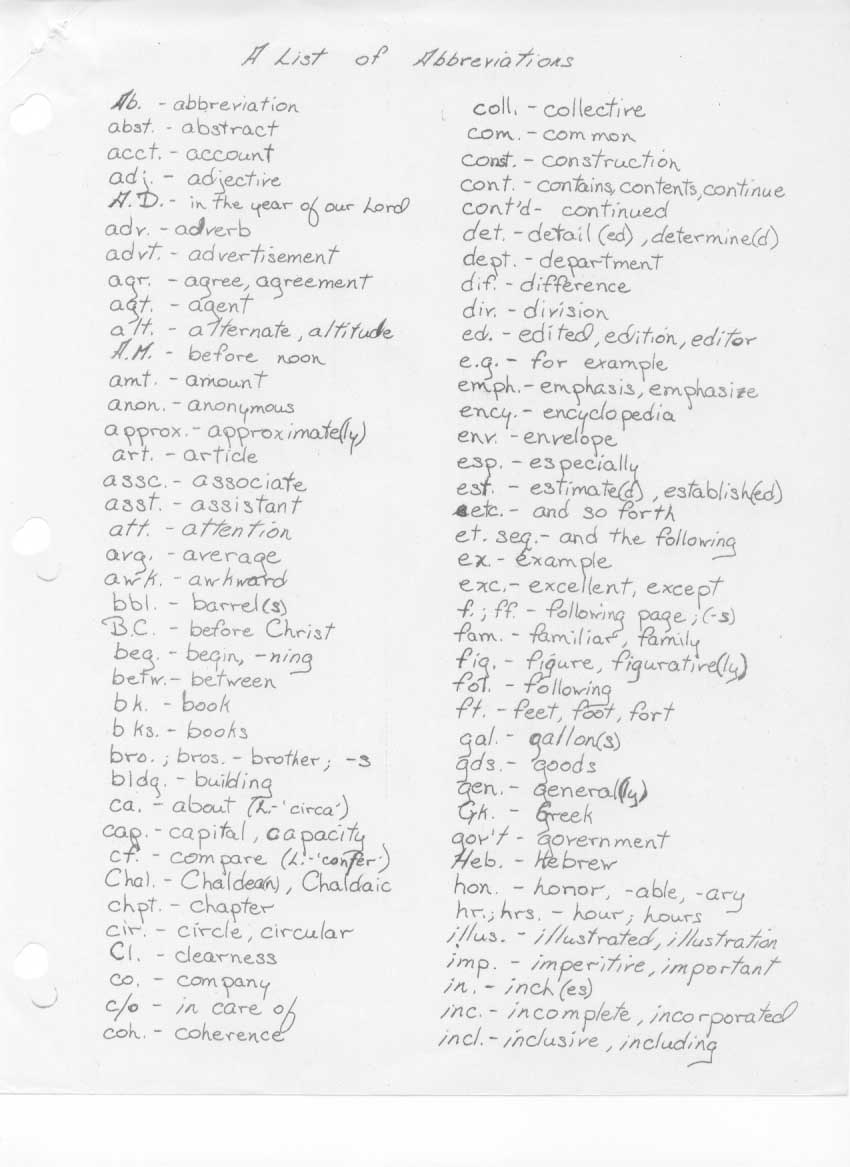 A List of Abbreviations
Ab. - abbreviation
abst. - abstract
acct. - account
adj. - adjective
A.D. - in the year of our Lord
adv. - adverb
advt. - advertisement
agr. - agree, agreement
agt. - agent
alt. - alternate, altitude
A.M. - before noon
amt. - amount
anon. - anonymous
approx. - approximate(ly)
art. - article
assc. - associate
asst. - assistant
att. - attention
avg. - average
awk. - awkward
bbl. - barrel(s)
B.C. - before Christ
beg. - begin, -ning
betw. - between
bk. - book
bks. - books
bro.; bros. - brother; -s
bldg. - building
ca. - about (L.-'circa')
cap. - capital, capacity
cf. - compare (L.-'confer')
Chal. - Chaldea(n), Chaldaic
chpt. - chapter
cir. - circle, circular
Cl. - clearness
co. - company
c/o - in care of
coh. - coherence
coll. - collective
com. - common
const. - construction
cont. - contains, contents, continue
cont'd - continued
det. - detail(ed), determine(d)
dept. - department
dif. - difference
div. - division
ed. - edited, edition, editor
e.g. - for example
emph. - emphasis, emphasize
ency. - encyclopedia
env. - envelope
esp. - especially
est. - estimate(d), establish(ed)
etc. - and so forth
et. seq. - and the following
ex. - example
exc. - excellent, except
f.; ff. - following page; (-s)
fam. - familiar, family
fig. - figure, figurative(ly)
fol. - following
ft. - feet, foot, fort
gal. - gallon(s)
gds. - goods
gen. - general(ly)
Gk. - Greek
gov't - government
Heb. - Hebrew
hon. - honor, -able, -ary
hr.; hrs. - hour; hours
illus. - illustrated, illustration
imp. - imperitire, important
in. - inch(es)
inc. - incomplete, incorporated
incl. - inclusive, including